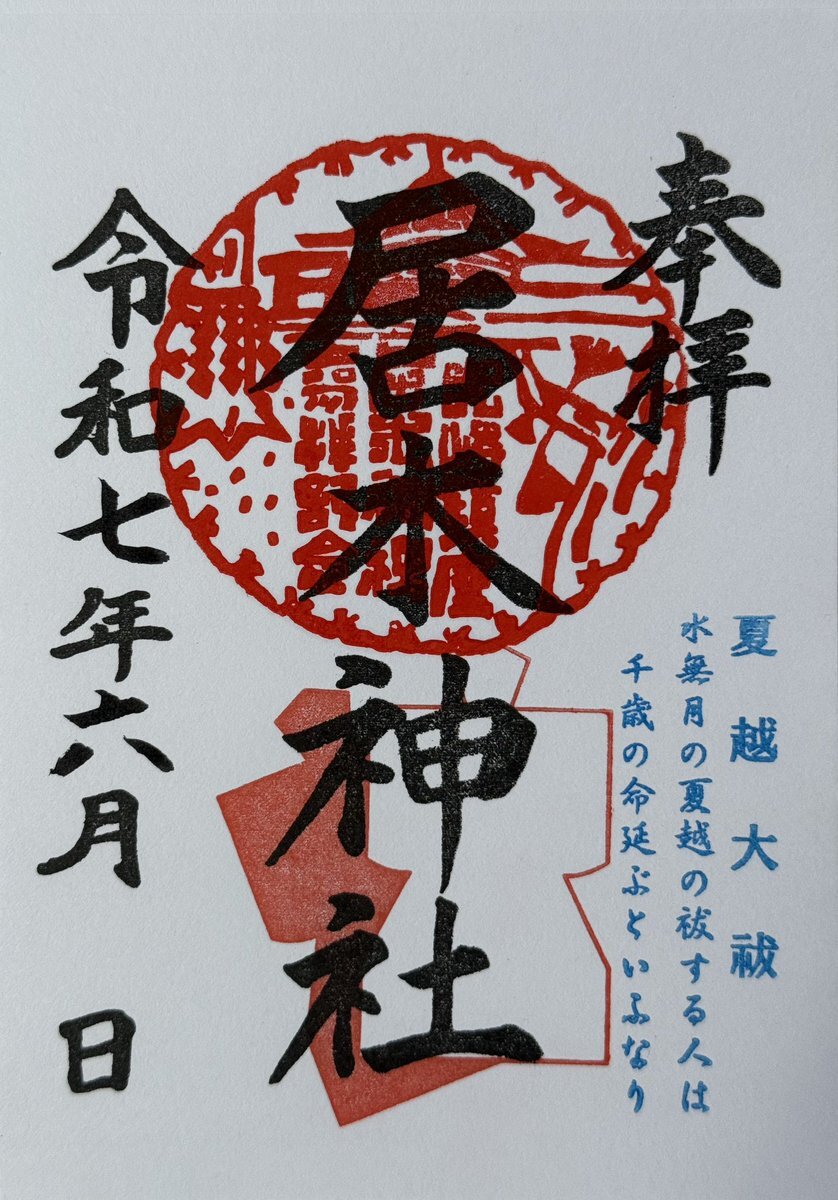 奉拝
夏越大祓
水無月の夏越の祓する人は
千歳の命延ぶといふなり
居木神社
令和七年六月 日